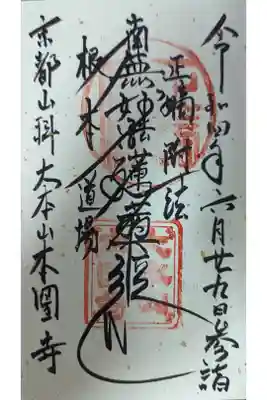 令和四年六月廿九日参詣
正嫡附法
南無妙法蓮華経
根本道場
京都山科 大本山本圀寺